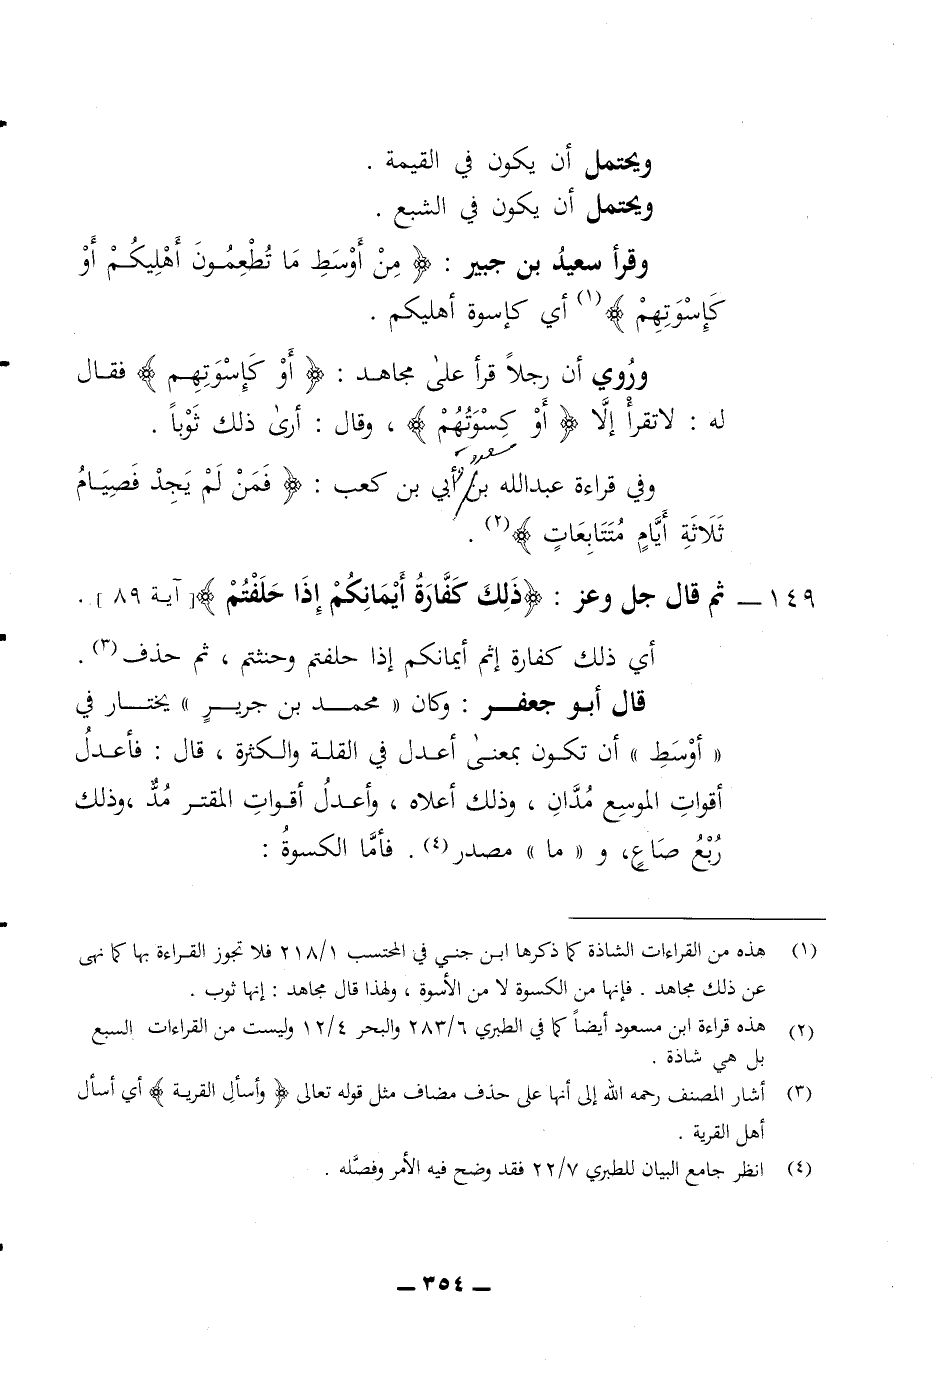 ويحتمل أن يكون في القيمة .
ويحتمل أن يكون في الشبع .
وقرأ سعيدُ بن جبير : ﴿ مِنْ أَوْسَطِ مَا تُطْعِمُونَ أَهْلِيكُمْ أَوْ
كَإِسْوَتِهِمْ ﴾(١) أي كإسوة أهليكم .
ورُوي أن رجلاً قرأ علىٰ مجاهد : ﴿ أَوْ كَإِسْوَتِهِم ﴾ فقال
له : لاتقرأْ إلَّا ﴿ أَوْ كِسْوَتُهُمْ ﴾ ، وقال : أرىٰ ذلك ثَوْباً .
مسعود و
وفي قراءة عبدالله بن أبي بن كعب : ﴿ فَمَنْ لَمْ يَجِدْ فَصِيَامُ
ثَلَاثَةِ أَيَّامٍ مُتَتَابِعَاتٍ ﴾(٢) .
١٤٩ ــ ثم قال جل وعز : ﴿ذَلِكَ كَفَّارَةُ أَيْمَانِكُمْ إِذَا حَلَفْتُمْ ﴾[ آية ٨٩ ] .
أي ذلك كفارة إثم أيمانكم إذا حلفتم وحنثتم ، ثم حذف(٣) .
قال أبو جعفر : وكان « محمد بن جريرٍ » يختار في
« أوْسَطِ » أن تكون بمعنىٰ أعدل في القلة والكثرة ، قال : فأعدلُ
أقواتِ الموسِعِ مُدَّانِ ، وذلك أعلاه ، وأعدلُ أقواتِ المقتر مُدٌّ ،وذلك
رُبْعُ صَاعٍ، و « ما » مصدر(٤) . فأمَّا الكسوةُ :
(١) هذه من القراءات الشاذة كما ذكرها ابن جني في المحتسب ٢١٨/١ فلا تجوز القراءة بها كما نهى
عن ذلك مجاهد . فإنها من الكسوة لا من الأسوة ، ولهذا قال مجاهد : إنها ثوب .
(٢) هذه قراءة ابن مسعود أيضاً كما في الطبري ٢٨٣/٦ والبحر ١٢/٤ وليست من القراءات السبع
بل هي شاذة .
(٣) أشار المصنف رحمه الله إلى أنها على حذف مضاف مثل قوله تعالى ﴿ وأسألِ القرية ﴾ أي أسأل
أهل القرية .
(٤) انظر جامع البيان للطبري ٢٢/٧ فقد وضح فيه الأمر وفصَّله .
ــ ٣٥٤ ــ